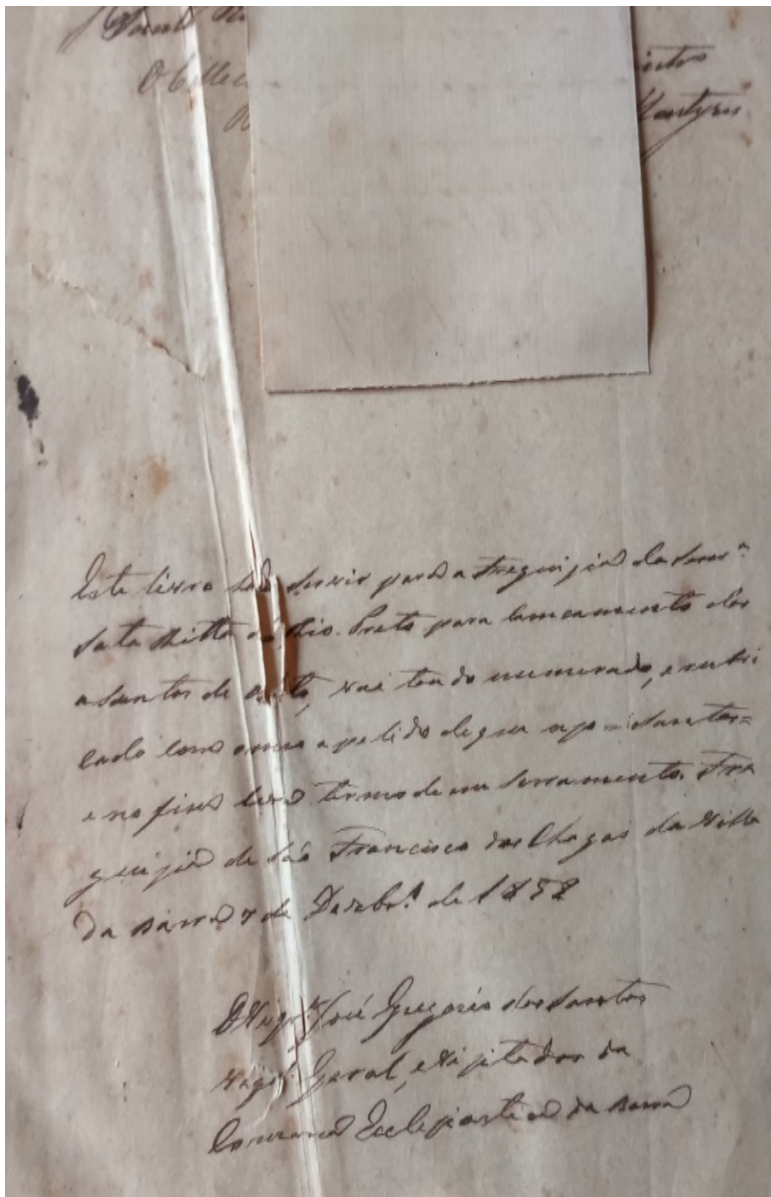 Este livro ha de servir para a Freguizia da Senr.ª
Sata Ritta do Rio Preto para lancamento dos
asentos de osito, vai tendo numerado, e rubri
cado com o meu apelido de que uzo = Santos=
e no fim leva termo de enserramento. Fre
guizia de São Francisco das Chagas da Villa
da Barra 7 de Dezebr.º de 1858
O Vigr.º José Gregorio dos Santos
Vigr.º Geral, e Vizitador da
Comarca Ecleziastica da Barra